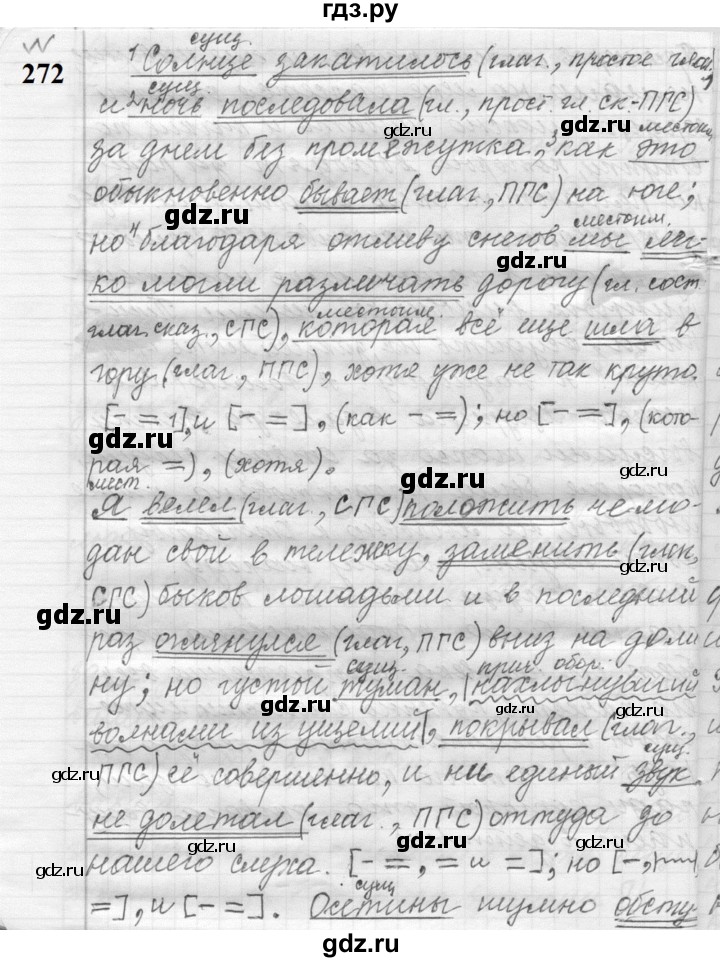 гдз.ру
№
272
сущ.
1 Солнце закатилось (глаг., простое глаг.
сущ.
и 2 ночь последовала (гл., прост. гл. ск-ПГС)
gdz.ru
местоим.
за днем без промежутка, 3 как это
gdz.ru
обыкновенно бывает (глаг., ПГС) на юге;
gdz.ru
местоим.
но 4 благодаря отливу снегов мы лег-
gdz.ru
ко могли различать дорогу (гл. сост.
местоим.
глаг. сказ., СГС), которая всё ещё шла в
гору (глаг., ПГС), хотя уже не так круто.
[- = 1], и [- =], (как - =); но [- =], (кото-
gdz.ru
рая =), (хотя).
gdz.ru
мест.
Я велел (глаг., СГС) положить чемо-
дан свой в тележку, заменить (глаг.,
gdz.ru
СГС) быков лошадьми и в последний
gdz.ru
gdz.ru
раз оглянулся (глаг., ПГС) вниз на доли
сущ. прич. обор.
ну; но густый туман, |нахлынувший
gdz.ru
gdz.ru
волнами из ущелий|, покрывал (глаг.,
сущ.
ПГС) её совершенно, и ни единый звук
gdz.ru
gdz.ru
не долетал (глаг., ПГС) оттуда до
gdz.ru
нашего слуха. [- =, = и =]; но [-,
gdz.ru
gdz.ru
сущ
=], и [- =]. Осетины шумно обсту
gdz.ru
gdz.ru